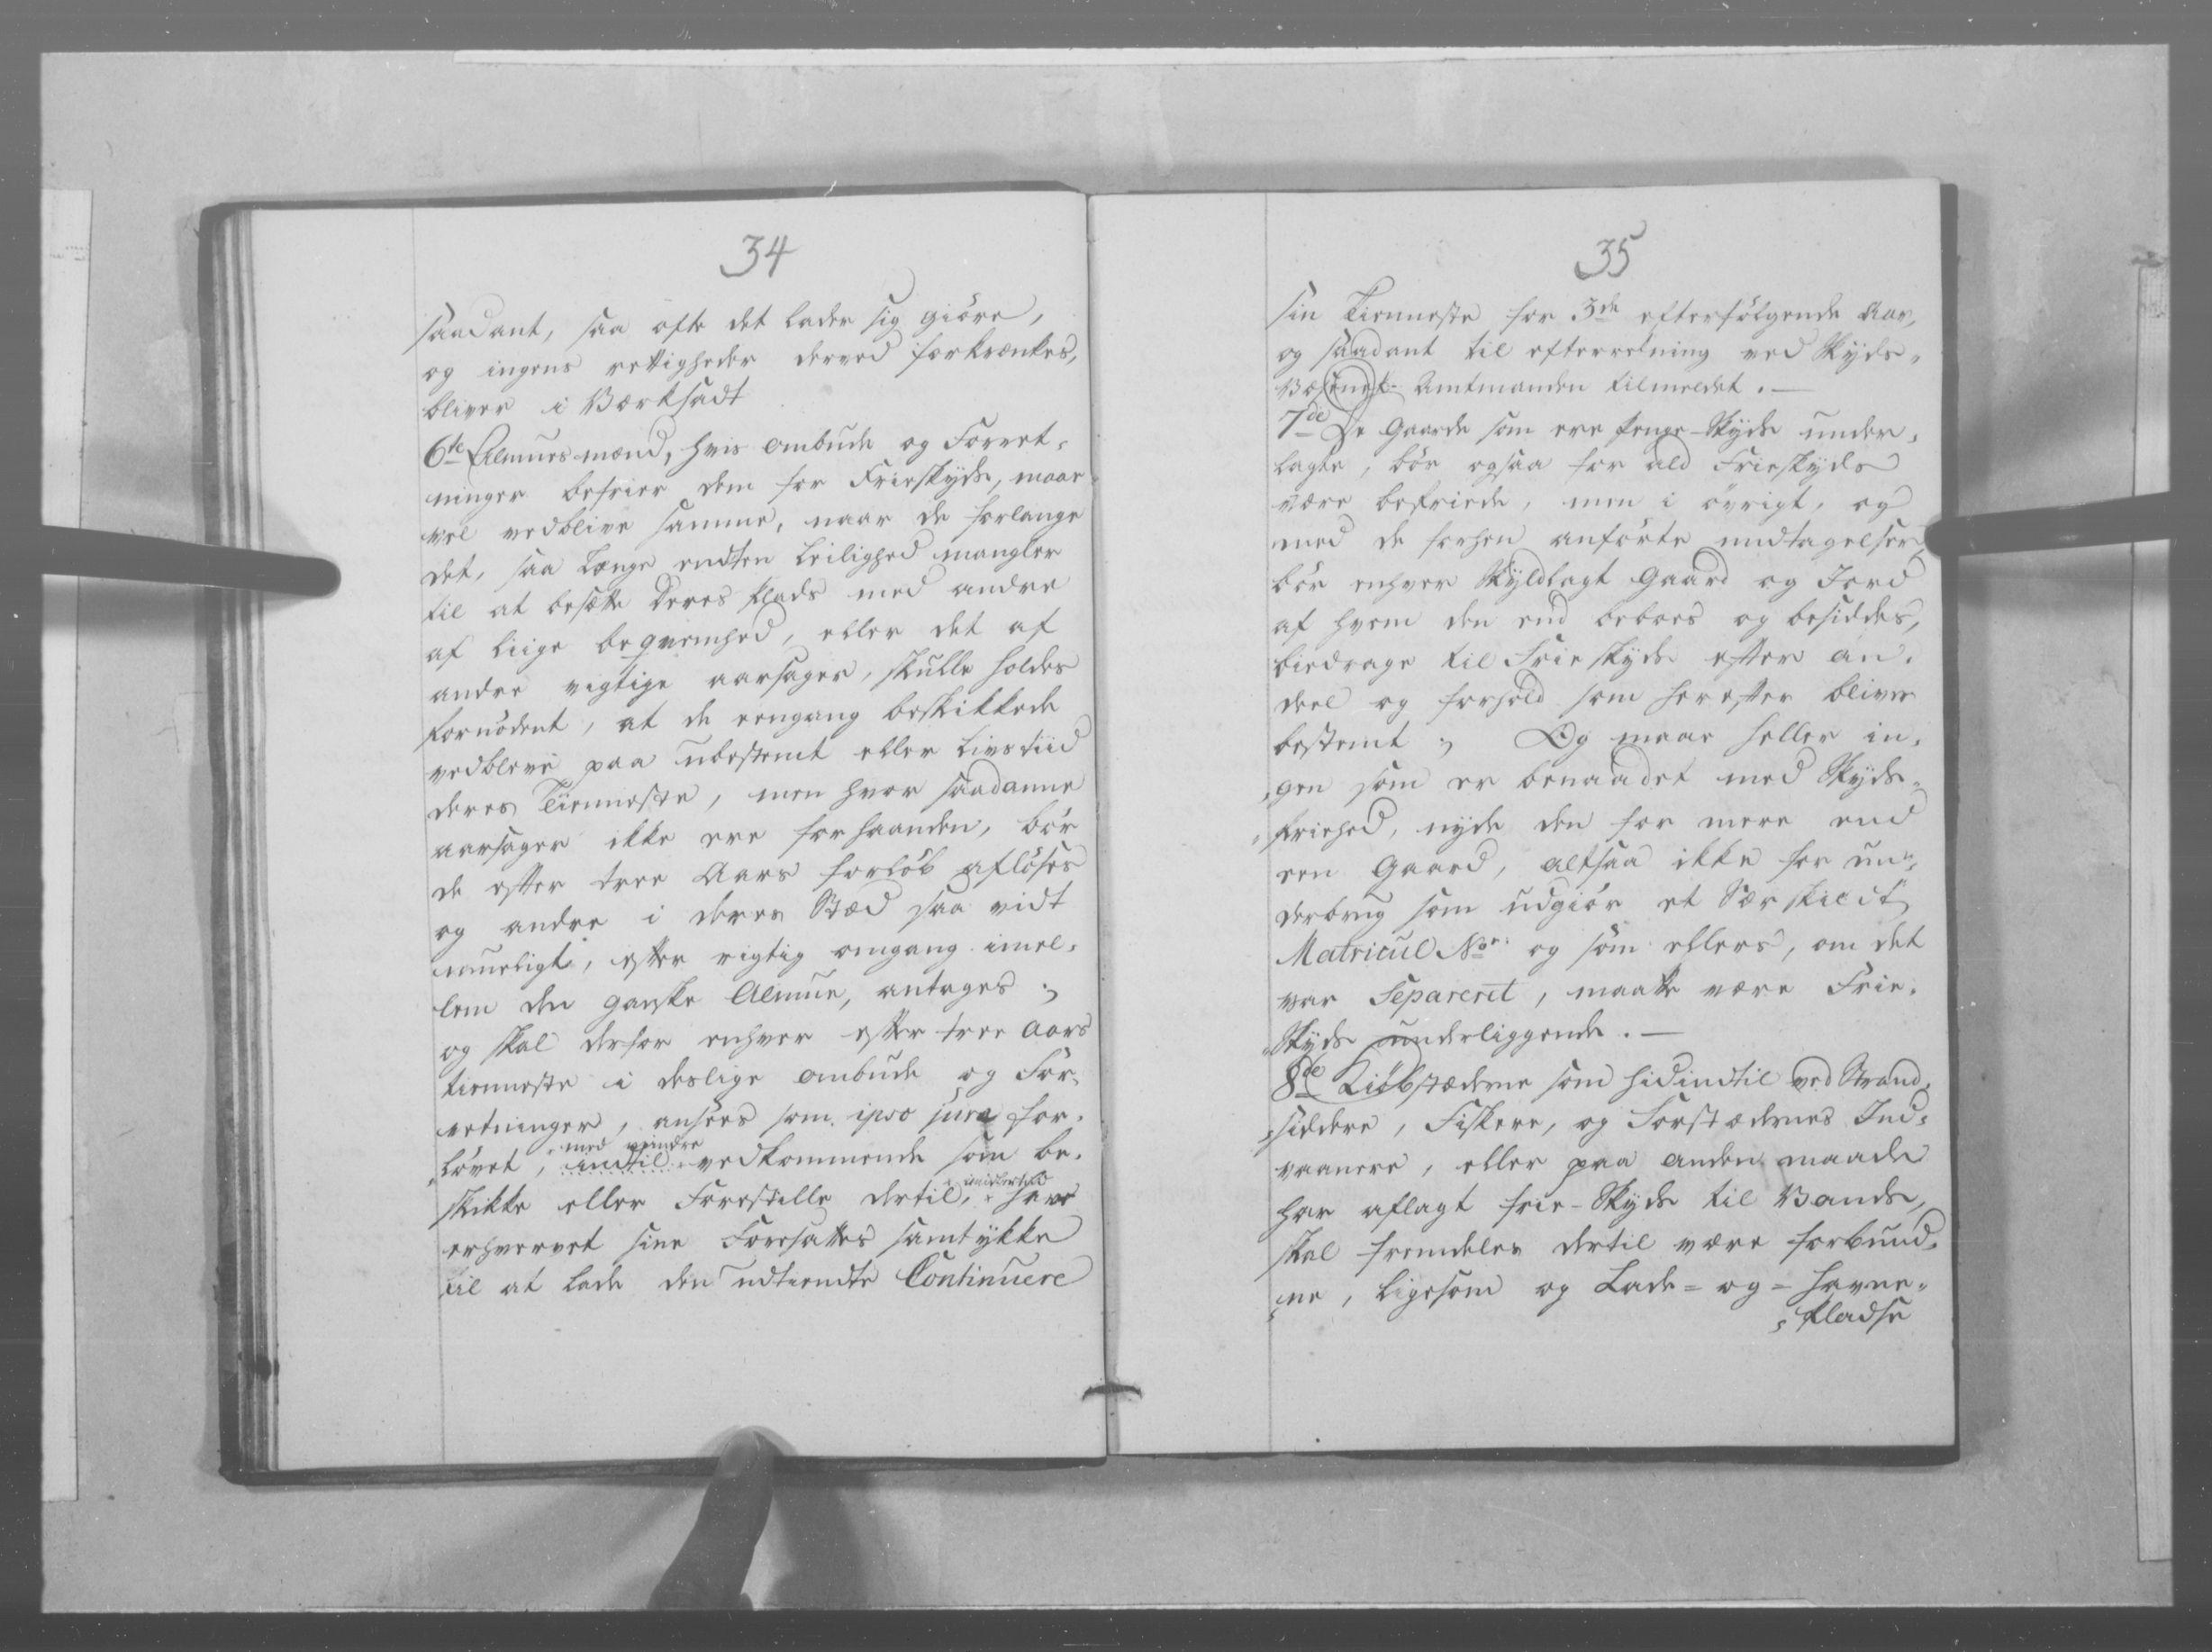 34
saadant, saa ofte det lader sig giöre,
og ingens rettigheder derved forkrænkes,
bliver i Værksadt
6te Almues mænd, hvis ombude og Forret-
ninger befrier dem for Frieskyds, maae
vel vedblive samme, naar de forlange
det, saa længe endten Leilighed mangler
til at besætte deres Plads med andre
af liige beqvemhed, eller det af
andre vigtige aarsager, skulle holdes
fornödent, at de eengang beskikkede
vedbleve paa ubestemt eller Livstiid
deres Tienneste, men hvor saadanne
aarsager ikke ere forhaanden, bör
de efter tree Aars forlöb aflöses
og andre i deres Stæd saa vidt
mueligt, efter rigtig omgang imel-
lem den ganske Almue, antages ;
og skal derfor enhver efter tree Aars
tienneste i deslige ombude og For-
retninger, ansees som ipso jure for-
med mindre
lövet, indtil vedkommende som be-
imidlertid
skikke eller Forestille dertil, have
erhvervet sine Foresattes samtykke
til at lade den udtiendte Continuere
35
sin Tienneste for 3de efterfölgende Aar,
og saadant til efterretning ved Skyds-
Væsenet Amtmanden tilmeldet. —
7de De Gaarde som ere Penge-Skyds under-
lagte, bör ogsaa for ald Frieskyds
være befriede, men i övrigt, og
med de forhen anförte undtagelser
bör enhver Skyldlagt Gaard og Jord
af hvem den end beboes og besiddes,
biedrage til Frieskyds efter an-
deel og forhold som herefter bliver
bestemt ; Og maae heller in-
gen som er benaadet med Skyds-
friehed, nyde den for mere end
een Gaard, altsaa ikke for un-
derbrug som udgiör et Særskildt
Matricul No. og som ellers, om det
var Separeret, maatte være Frie-
Skyds underliggende. —
8de Kiöbstæderne som hidindtil ved Strand-
siddere, Fiskere, og Forstædernes Ind-
vaanere, eller paa anden maade
har aflagt frie-Skyds til Vands,
skal fremdeles dertil være forbund-
ne, ligesom og Lade= og= Havne-
Pladse